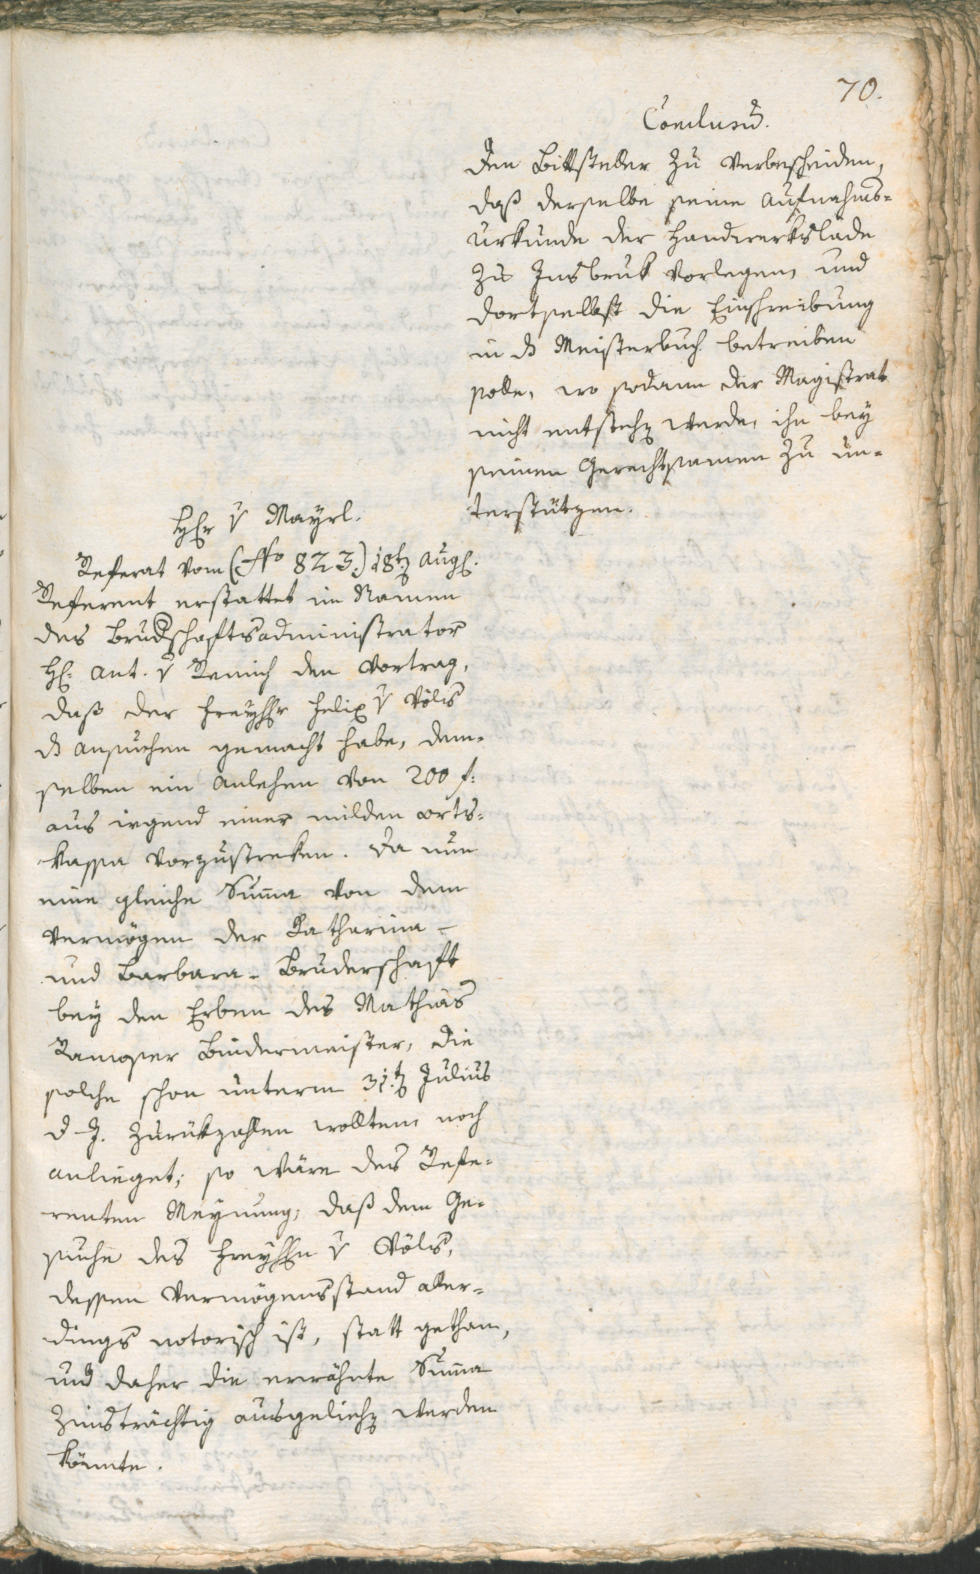 70.
Conclusũ.
Den Bittsteller zu verbescheiden,
daß derselbe seine Aufnahms-
urkunde der Handwerkslade
zu Insbruk vorlegen, und
dortselbst die Einschreibung
in ds Meisterbuch betreiben
solle, wo sodann der Magistrat
nicht entstehen werde, ihn bey
seinen Gerechtsamen zu un-
terstützen.
Hr v Mayrl.
Referat vom (No 823.) 18ten Aug.
Referent erstattet im Namen
des Brudschaftsadministrator
H: Ant. v Remich den Vortrag,
daß der Freyhr Felix v Völs
ds Ansuchen gemacht habe, dem-
selben ein Anlehen von 200 f:
aus irgend einer milden Orts-
kassa vorzustreken. Da nun
eine gleiche Sum̃a von dem
Vermögen der Katharina-
und Barbara-Bruderschaft
bey den Erben des Mathias
Ramoser Bindermeister, die
solche schon unterm 31ten Julius
d. J. zurükzahlen wollten, noch
anlieget; so wäre des Refe-
renten Meynung, daß dem Ge-
suche des Freyhrn v Völs,
dessen Vermögensstand aller-
dings notorisch ist, statt gethan,
und daher die erwähnte Sum̃a
zinsträchtig ausgeliehen werden
könnte.